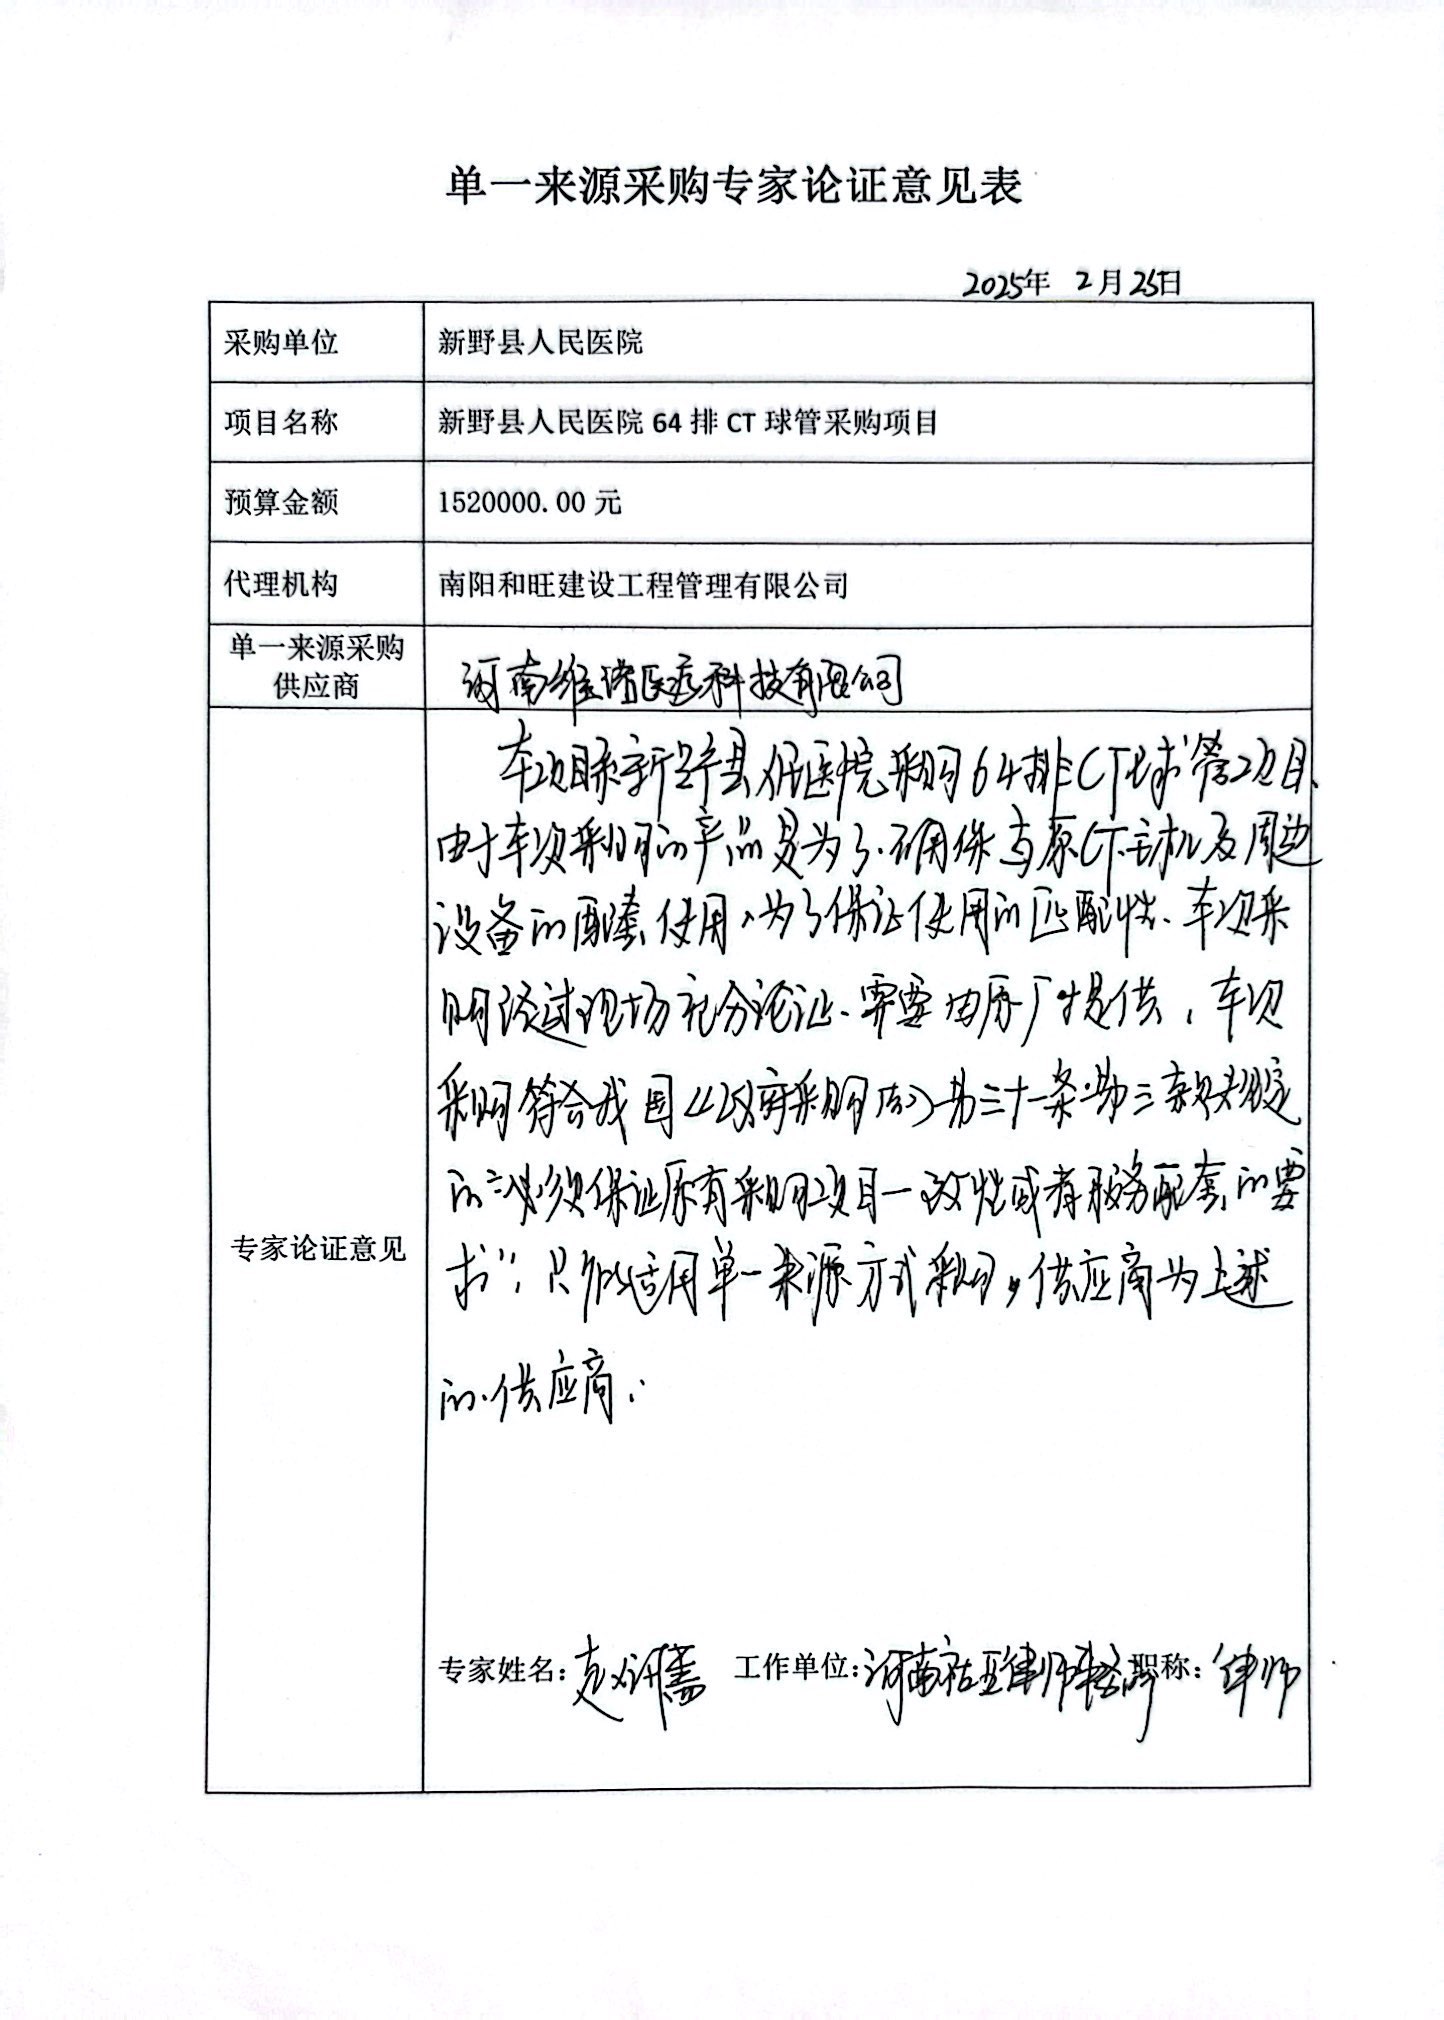 单一来源采购专家论证意见表
2025年 2月25日
采购单位 新野县人民医院
项目名称 新野县人民医院 64 排 CT 球管采购项目
预算金额 1520000.00 元
代理机构 南阳和旺建设工程管理有限公司
单一来源采购
供应商
河南维诺医疗科技有限公司
专家论证意见
本项目系新野县人民医院采购64排CT球管项目、
由于本次采购的产品是为了、确保与原CT主机及周边
设备的配套使用、为了保证使用的匹配性、本次采
购经过现场充分论证、需要由原厂提供，本次
采购符合我国《政府采购法》第三十一条第三款规定
的"必须保证原有采购项目一致性或者服务配套的要
求"，只能适用单一来源方式采购，供应商为上述
的供应商。
专家姓名：赵 工作单位：河南 律师事务所 职称：律师